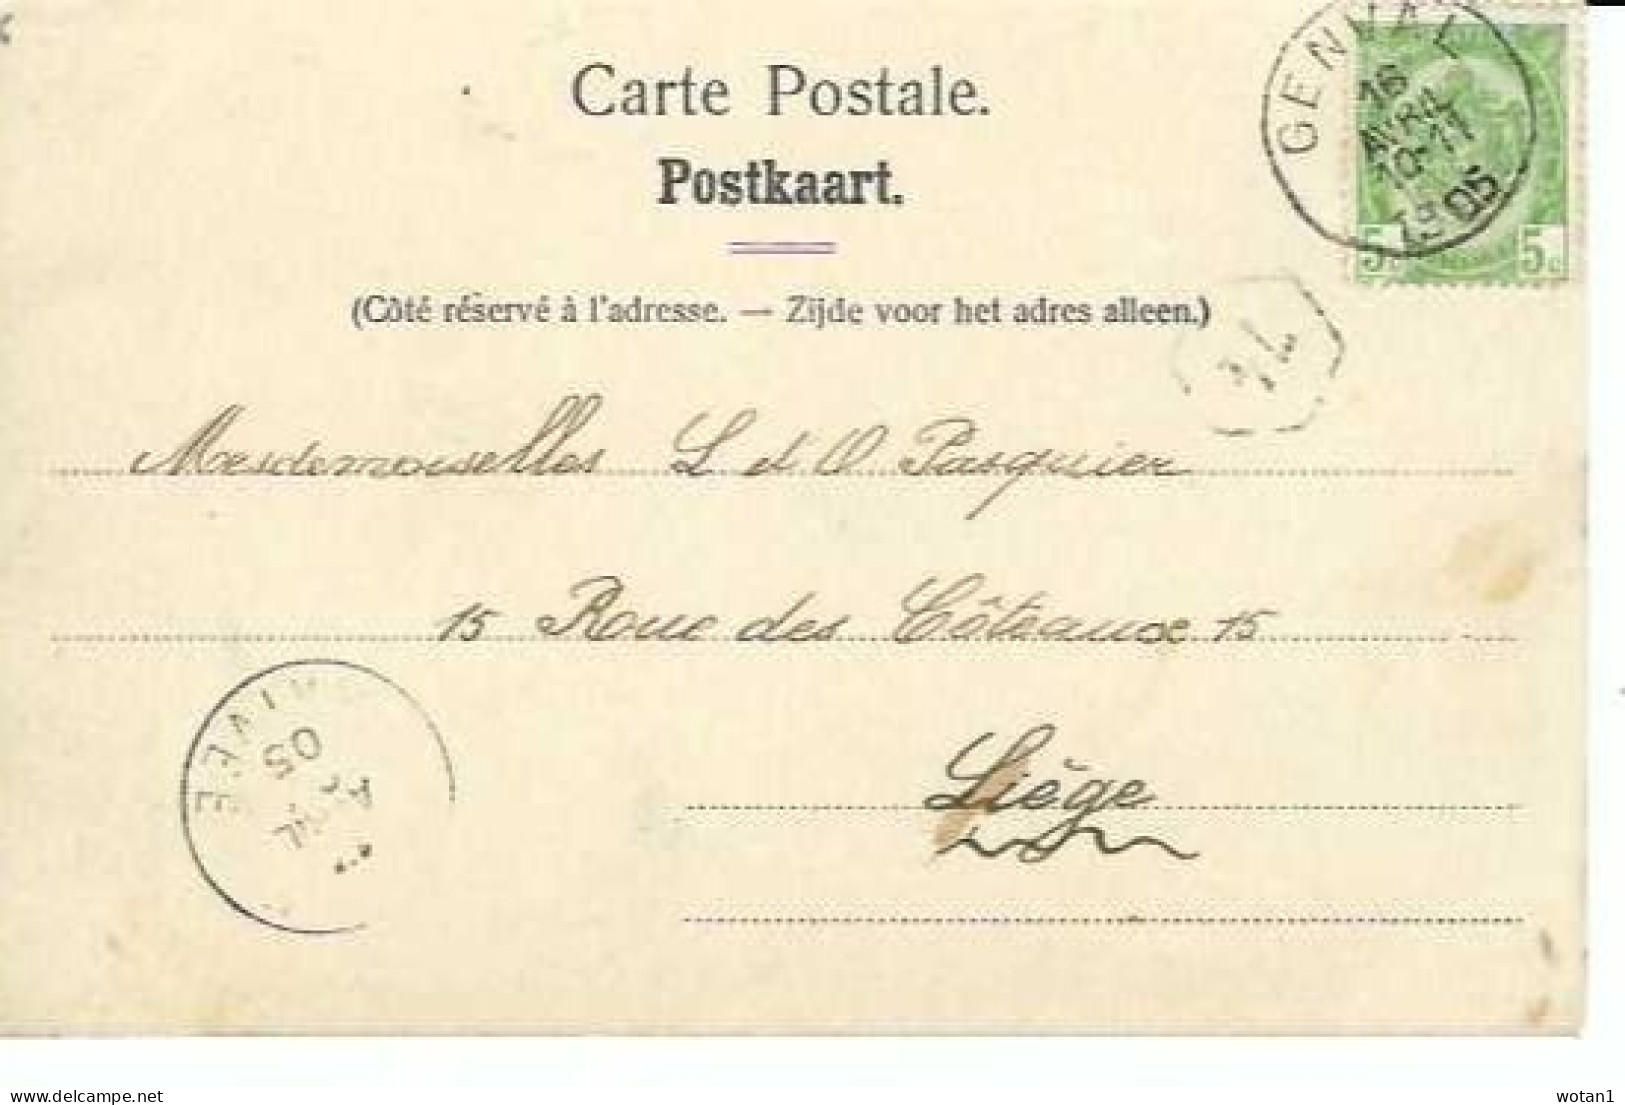 GENVAL
16
AVRIL
10-11
1905
5c 5c
Carte Postale.
Postkaart.
(Côté réservé à l'adresse. — Zijde voor het adres alleen.)
Mesdemoiselles L d'O Pasquier
15 Rue des Côteaux 15
Liége
05
delcampe.net
wotan1